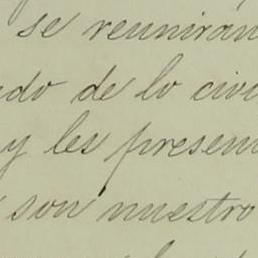 se reunirán
ado de lo civi
y les presen
son nuestro